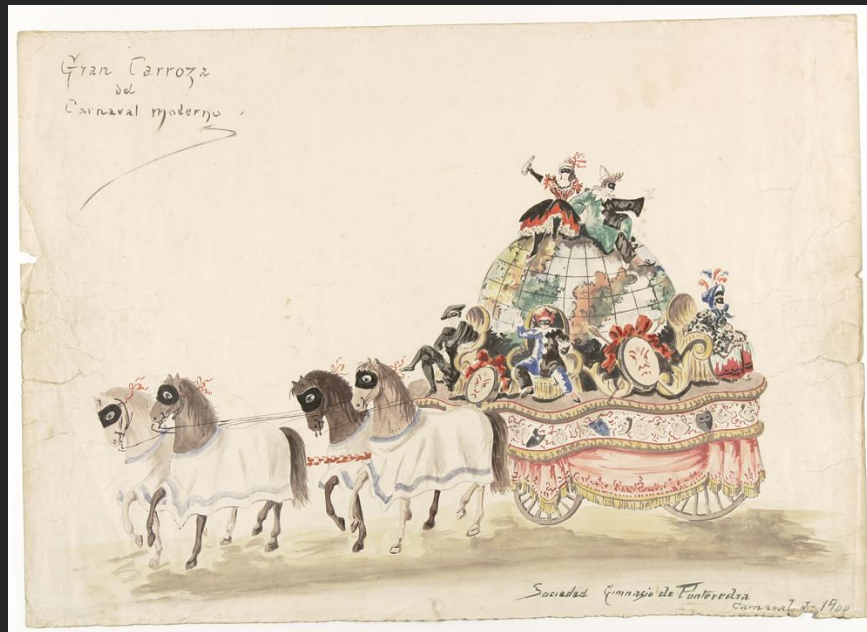 Gran Carroza
del
Carnaval moderno
Sociedad Gimnasio de Pontevedra
Carnaval de 1900